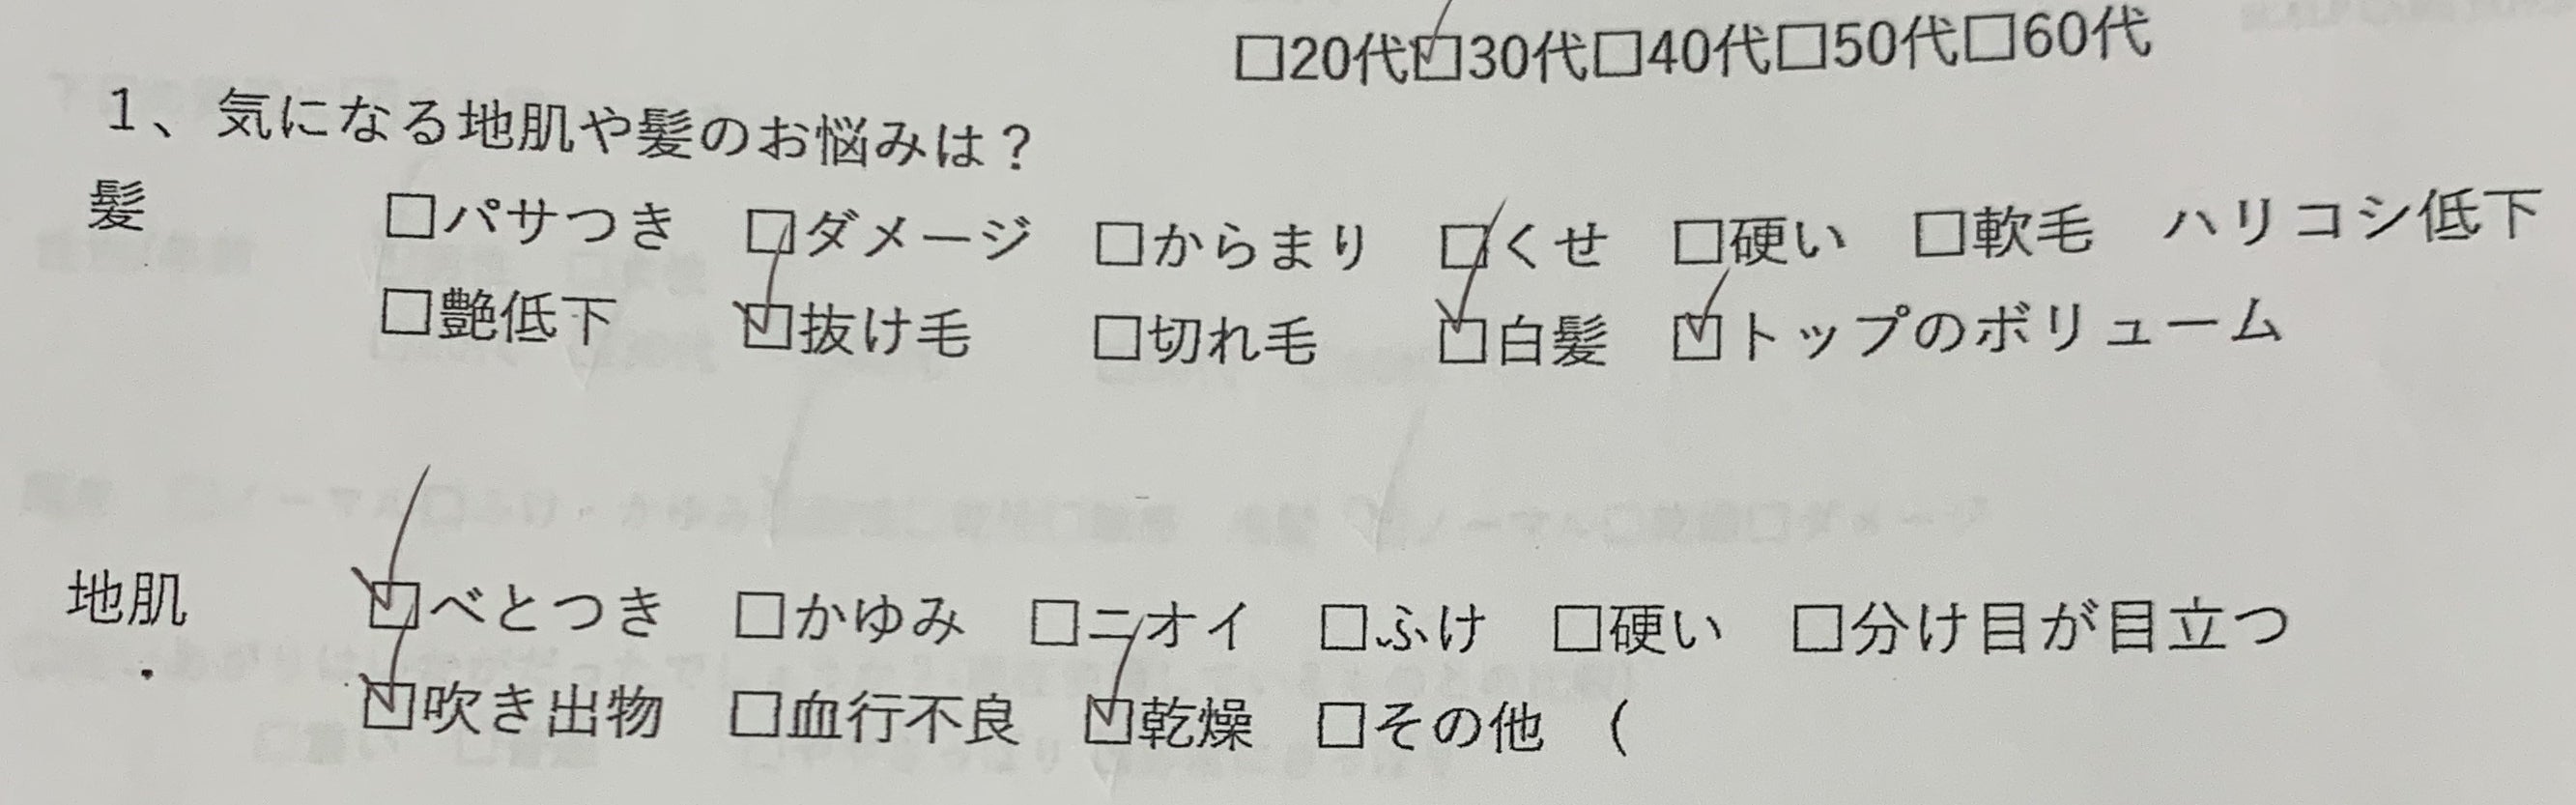 □20代☑30代□40代□50代□60代
1、気になる地肌や髪のお悩みは？
髪 □パサつき □ダメージ □からまり □くせ □硬い □軟毛 ハリコシ低下
□艶低下 ☑抜け毛 □切れ毛 ☑白髪 ☑トップのボリューム
地肌 ☑べとつき □かゆみ □ニオイ □ふけ □硬い □分け目が目立つ
☑吹き出物 □血行不良 ☑乾燥 □その他 （